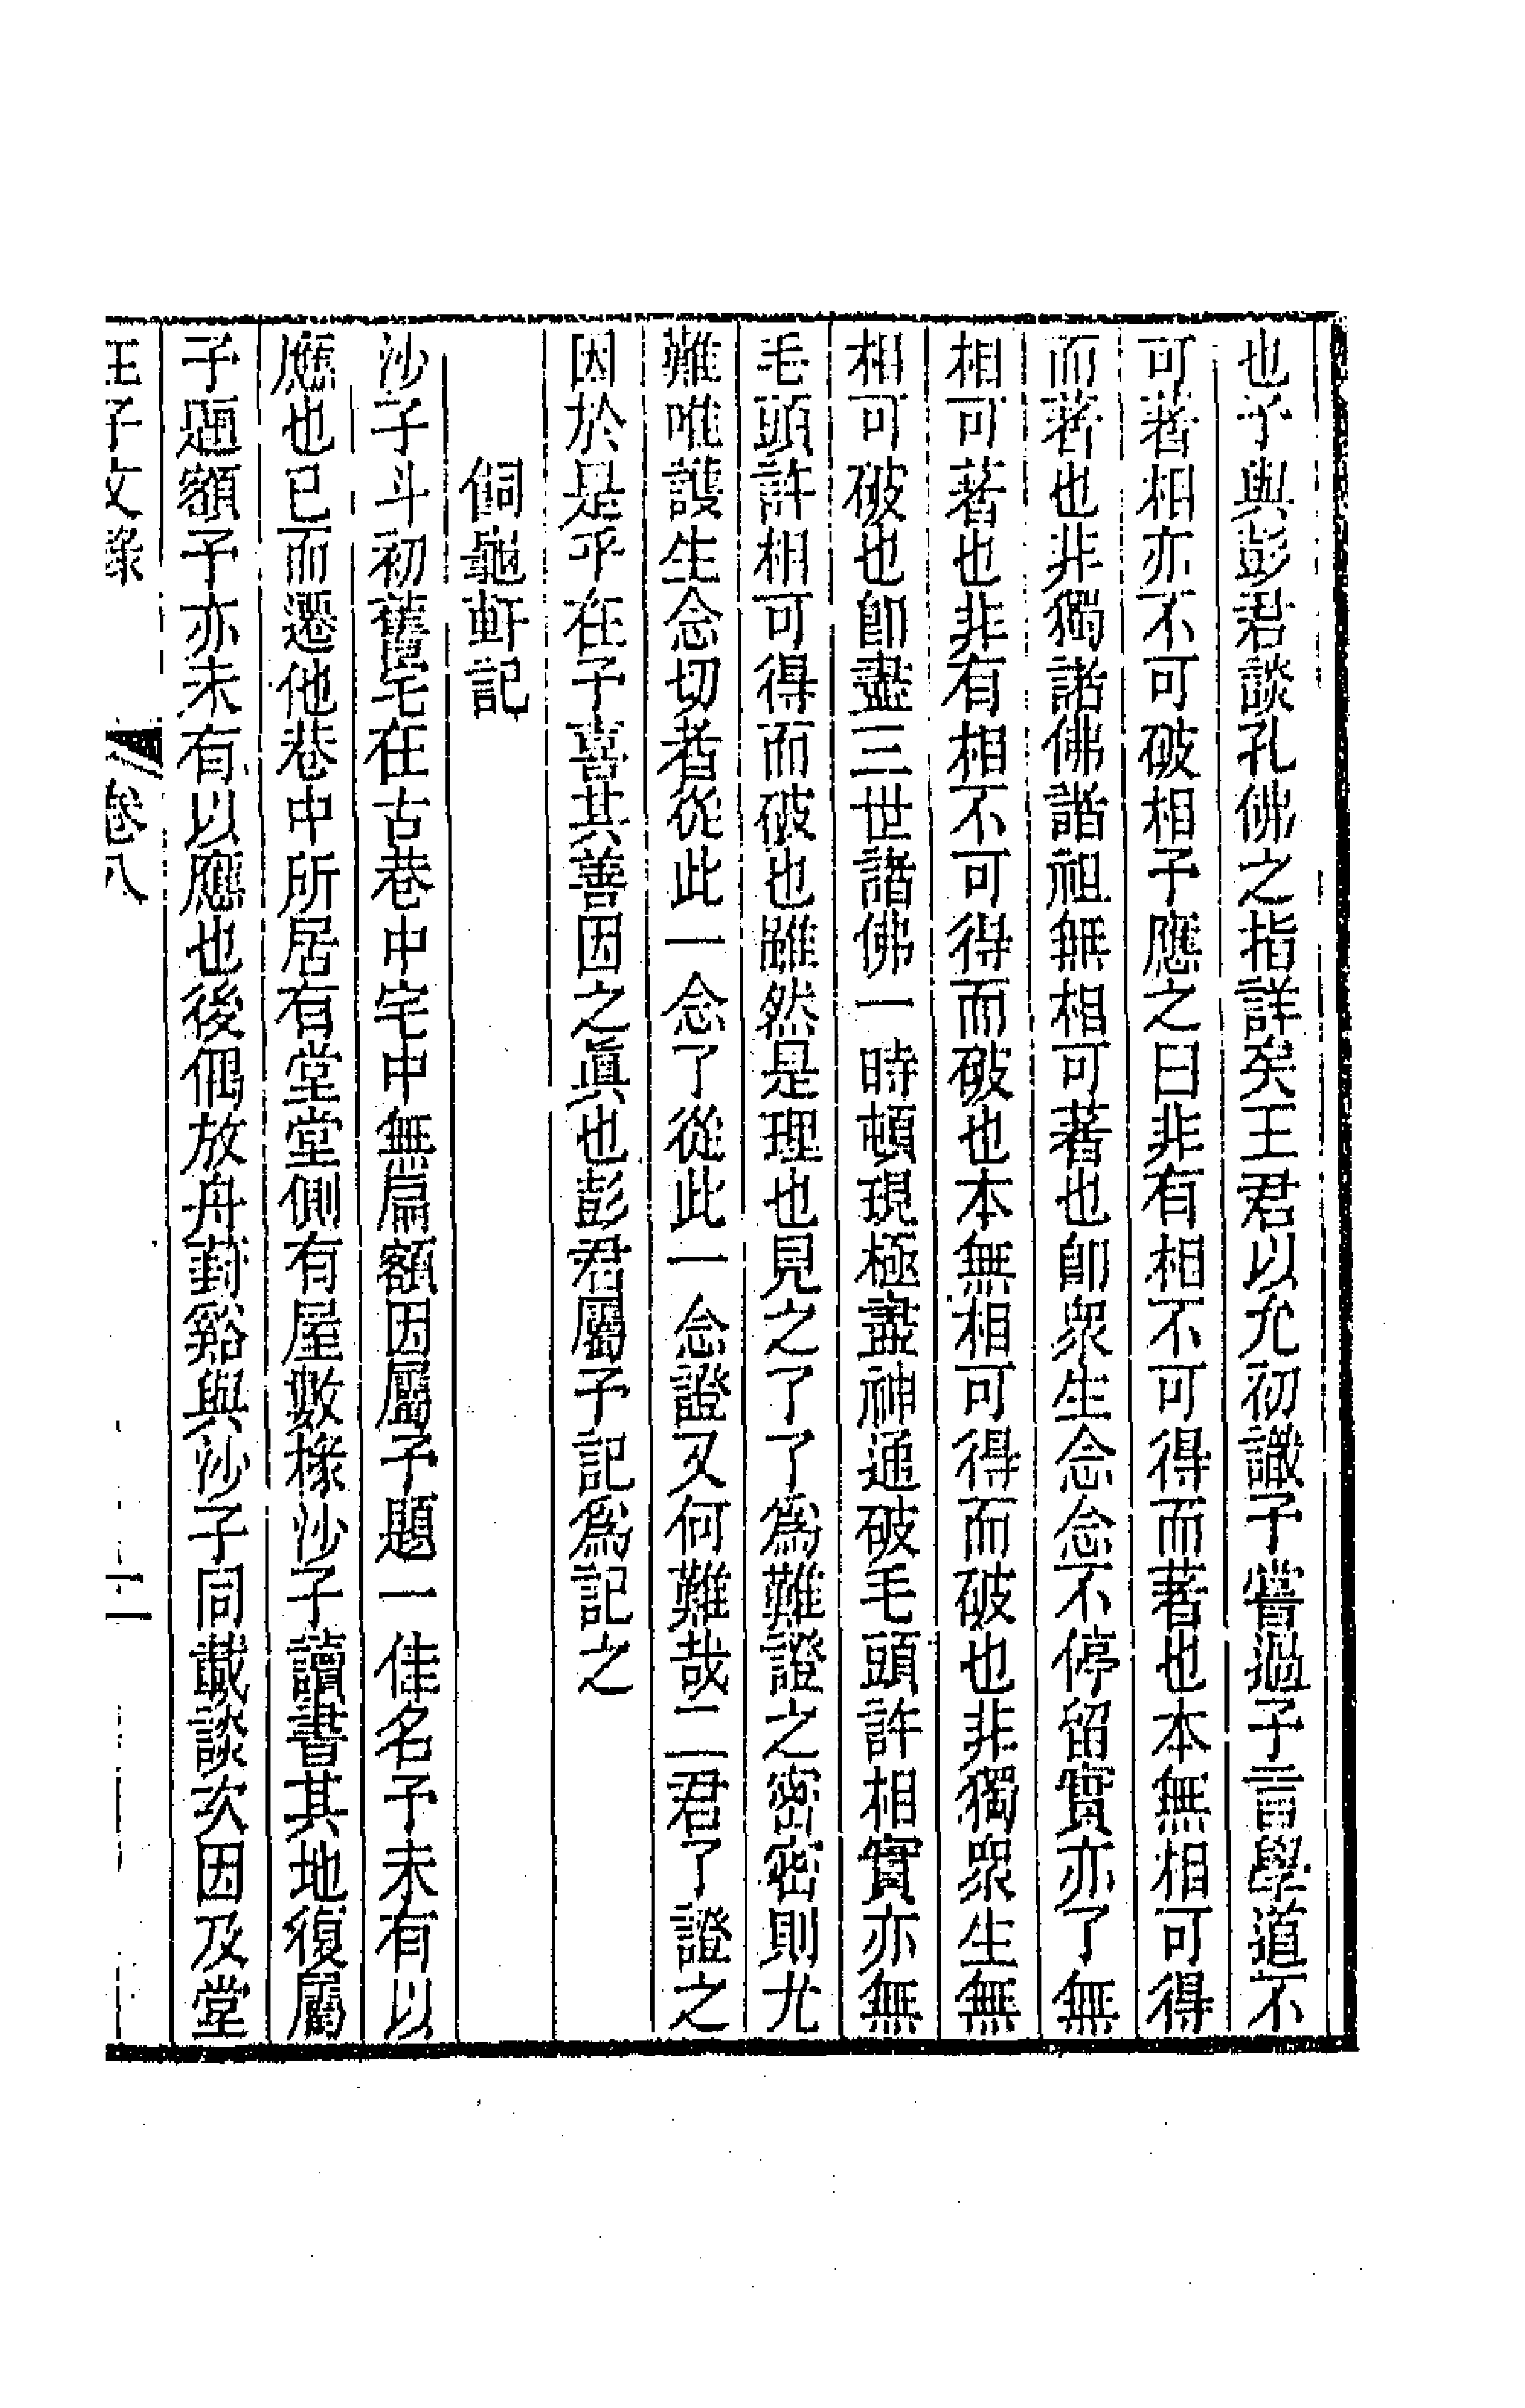 也予與彭君談孔佛之指詳矣王君以允初識予嘗過予言學道不
可著相亦不可破相予應之曰非有相不可得而著也本無相可得
而著也非獨諸佛諸祖無相可著也即衆生念念不停留實亦了無
相可著也非有相不可得而破也本無相可得而破也非獨衆生無
相可破也即盡三世諸佛一時頓現極盡神通破毛頭許相實亦無
毛頭許相可得而破也雖然是理也見之了了爲難證之密密則尤
難唯護生念切者從此一念了從此一念證又何難哉二君了證之
因於是乎在予喜其善因之眞也彭君屬予記爲記之
侗龜軒記
沙子斗初舊宅在古巷中宅中無扁額因屬予題一佳名予未有以
應也已而遷他巷中所居有堂堂側有屋數椽沙子讀書其地復屬
予題額予亦未有以應也後偶放舟葑谿與沙子同載談次因及堂
汪子文錄 卷八 十二